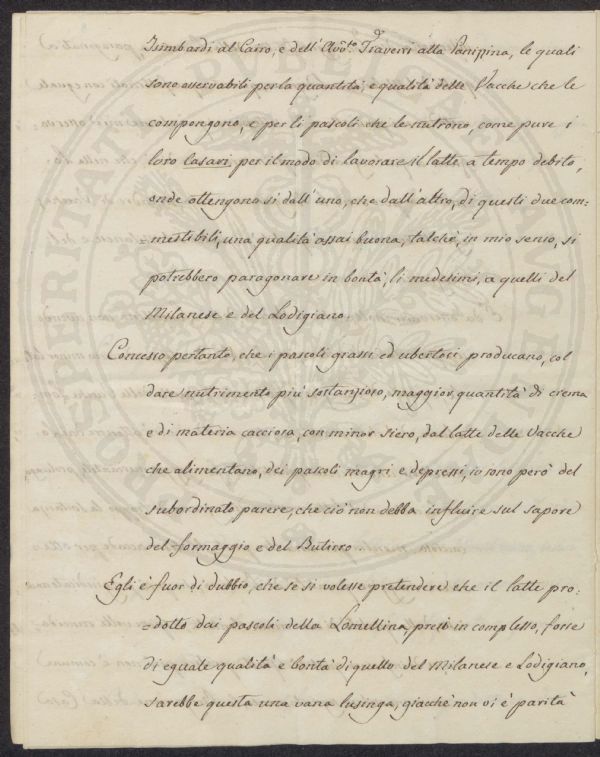 Isimbardi al Cairo, e dell'Avv.to Traversi alla Panizzina, le quali
sono osservabili per la quantità, e qualità delle Vacche che le
compongono, e per li pascoli che le nutrono, come pure i
loro Casari, per il modo di lavorare il latte a tempo debito,
onde ottengono sì dall'uno, che dall'altro, di questi due com=
=mestibili, una qualità assai buona, talchè, in mio senso, si
potrebbero paragonare in bontà, li medesimi, a quelli del
Milanese e del Lodigiano.
Concesso pertanto, che i pascoli grassi ed ubertosi producano, col
dare nutrimento più sostanzioso, maggior quantità di crema
e di materia cacciosa, con minor siero, dal latte delle Vacche
che alimentano, dei pascoli magri e depressi, io sono però del
subordinato parere, che ciò non debba influire sul sapore
del formaggio e del Butirro.
Egli è fuor di dubbio, che se si volesse pretendere che il latte pro=
=dotto dai pascoli della Lomellina, presi in complesso, fosse
di eguale qualità e bontà di quello del Milanese e Lodigiano,
sarebbe questa una vana lusinga, giacchè non vi è parità